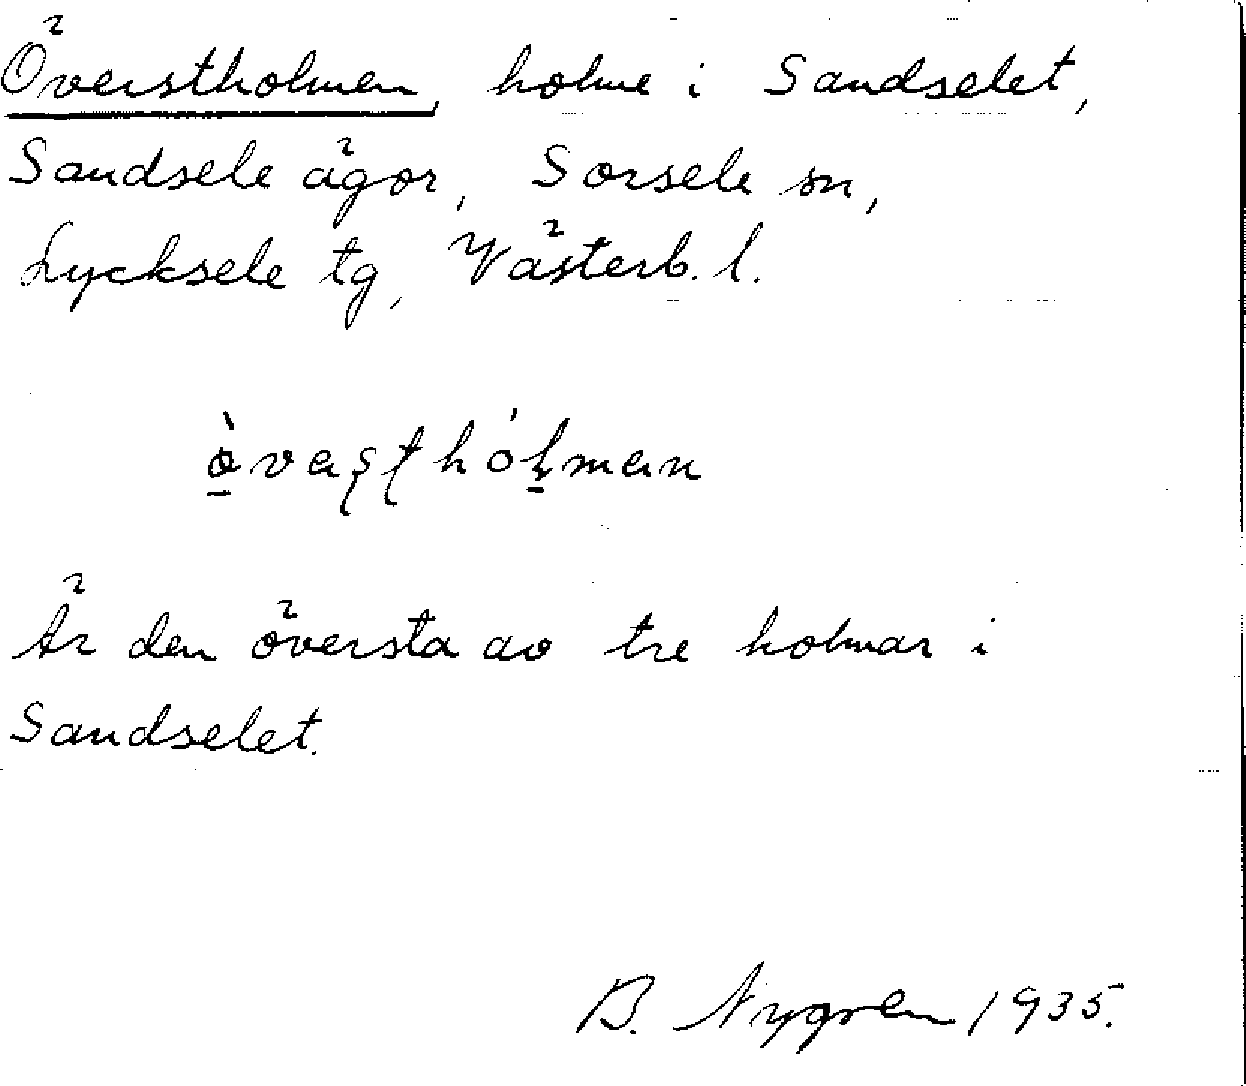 Överstholmen, holme i Sandselet,
Sandsele ägor, Sorsele sn,
Lycksele tg, Västerb. l.
Är den översta av tre holmar i
Sandselet.
B. Nygren 1935.